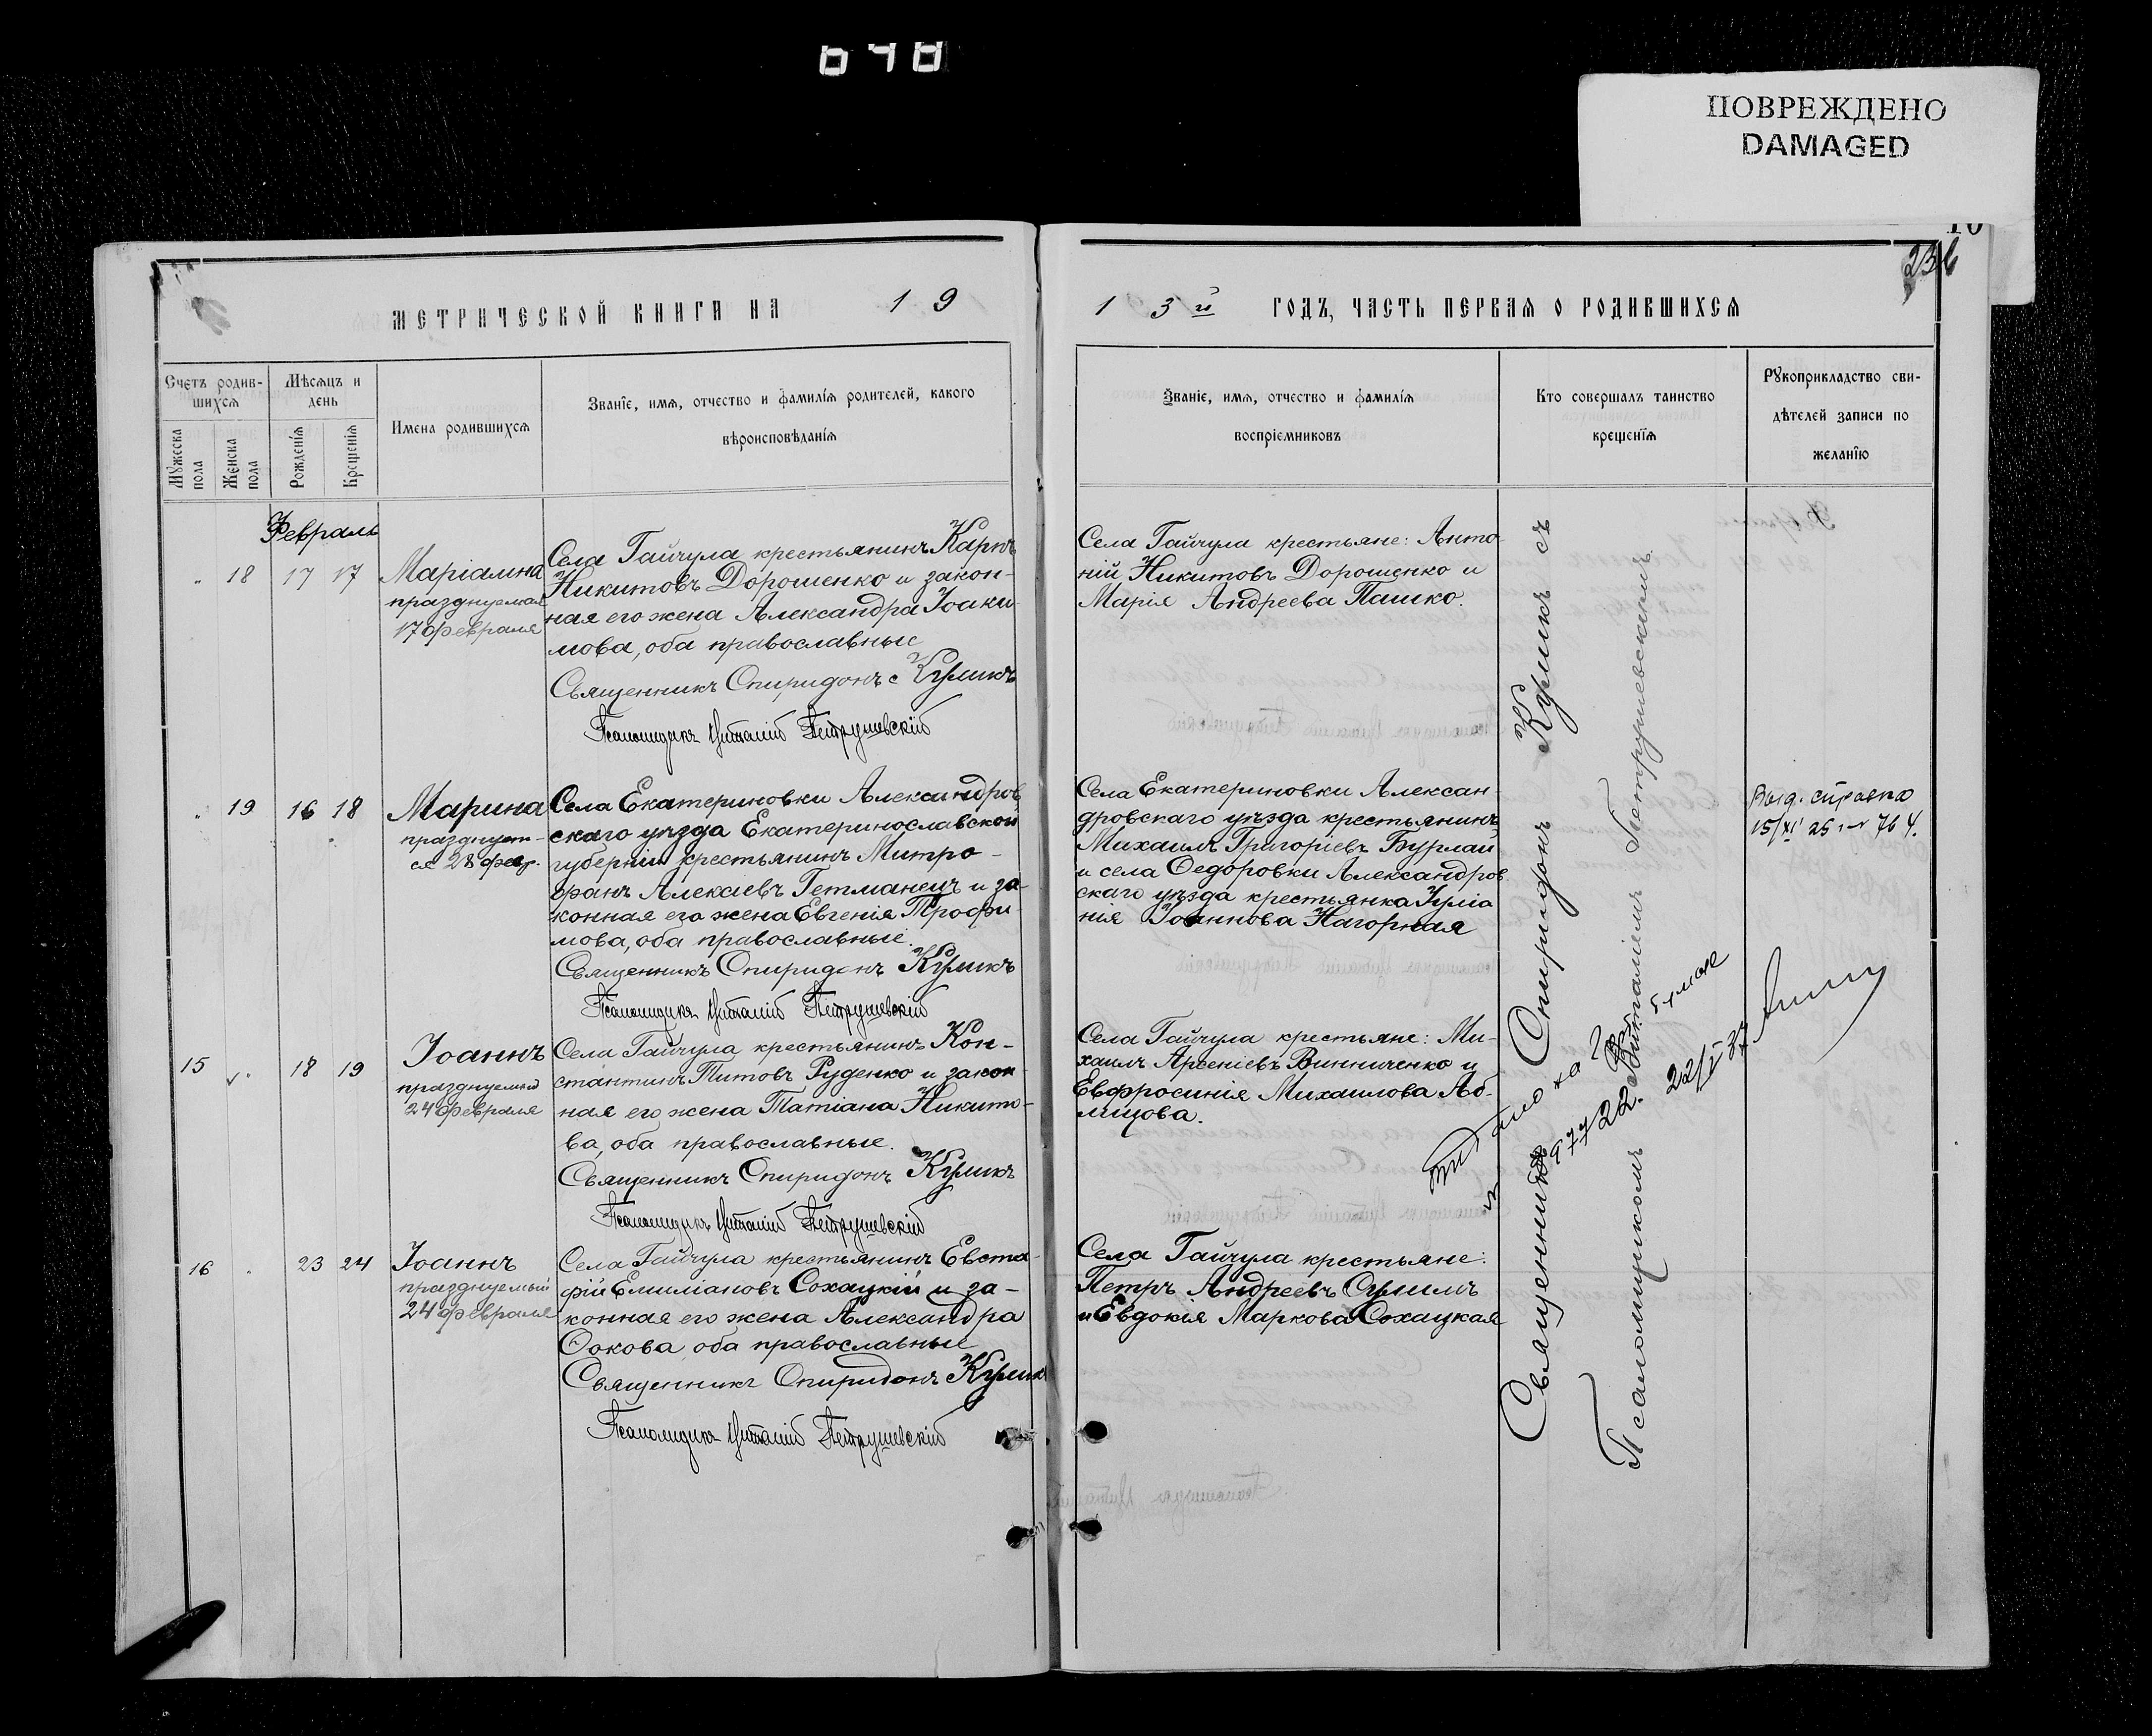 ПОВРЕЖДЕНО
DAMAGED
МЕТРИЧЕСКОЙ КНИГИ НА 19
13й ГОДЪ, ЧАСТЬ ПЕРВАЯ О РОДИВШИХСЯ
Счетъ родив-
шихся
Мѣсяцъ и
день
Мужеска
пола
Женска
пола
Рожденія
Крещенія
Имена родившихся
Званіе, имя, отчество и фамилія родителей, какого
вѣроисповѣданія
Званіе, имя, отчество и фамилія
воспріемниковъ
Кто совершалъ таинство
крещенія
Рукоприкладство сви-
дѣтелей записи по
желанію
Февраль
18 17 17
Маріамна
празднуемая
17 февраля
Села Гайчула крестьянинъ Карпъ
Никитовъ Дорошенко и закон-
ная его жена Александра Іоаки-
мова, оба православные
Священникъ Спиридонъ Куликъ
Псаломщикъ Виталій Петрушевскій
Села Гайчула крестьяне: Анто-
ній Никитовъ Дорошенко и
Марія Андреева Пашко.
19 16 18
Марина
празднует-
ся 28 фев.
Села Екатериновки Александров
скаго уѣзда Екатеринославской
губерніи крестьянинъ Митро-
фанъ Алексіевъ Гетманецъ и за-
конная его жена Евгенія Трофи-
мова, оба православные.
Священникъ Спиридонъ Куликъ
Псаломщикъ Виталій Петрушевскій
Села Екатериновки Алексан-
дровскаго уѣзда крестьянинъ
Михаилъ Григоріевъ Бурлай
и села Ѳедоровки Александров
скаго уѣзда крестьянка Іуліа
нія Іоаннова Нагорная
Выд. справка
15/XI 25 764.
15 18 19
Іоаннъ
празднуемый
24 февраля
Села Гайчула крестьянинъ Кон-
стантинъ Титовъ Руденко и закон-
ная его жена Татіана Никито-
ва, оба православные.
Священникъ Спиридонъ Куликъ
Псаломщикъ Виталій Петрушевскій
Села Гайчула крестьяне: Ми-
хаилъ Арсеніевъ Винниченко и
Евфросинія Михаилова Аб-
лицова.
16 23 24
Іоаннъ
празднуемый
24 февраля
Села Гайчула крестьянинъ Евста-
фій Емиліановъ Сохацкій и за-
конная его жена Александра
Ѳокова, оба православные
Священникъ Спиридонъ Куликъ
Псаломщикъ Виталій Петрушевскій
Села Гайчула крестьяне:
Петръ Андреевъ
и Евдокія Маркова Сохацкая
Священникъ Спиридонъ Куликъ съ
Псаломщикомъ Виталіемъ Петрушевскимъ
22/V 37